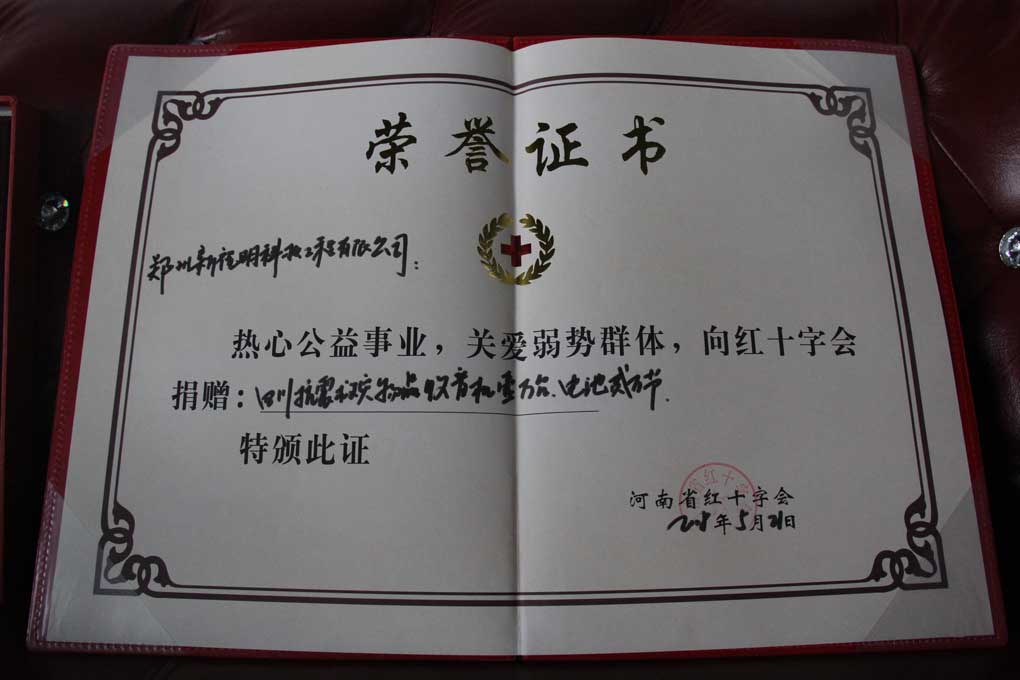 荣誉证书
郑州新光明科技工程有限公司：
热心公益事业，关爱弱势群体，向红十字会
捐赠：四川抗震救灾物品收音机壹万台、电池贰万节.
特颁此证
省红十字
河南省红十字会
2008年5月21日